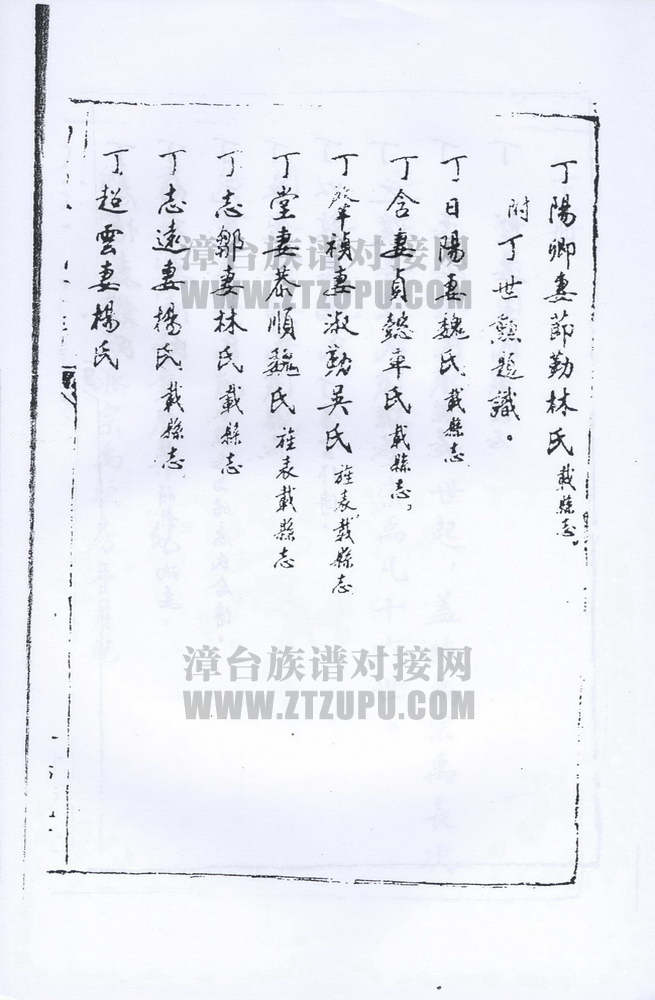 丁陽卿妻節勤林氏載縣志。
附丁世勲題識。
丁日陽妻魏氏載縣志
丁含妻貞懿辛氏載縣志。
丁肇楨妻淑勤吳氏旌表載縣志
丁堂妻恭順魏氏旌表載縣志
丁志鄒妻林氏載縣志
丁志遠妻楊氏載縣志
丁超雲妻楊氏
漳台族谱对接网
WWW.ZTZUPU.COM
漳台族谱对接网
WWW.ZTZUPU.COM